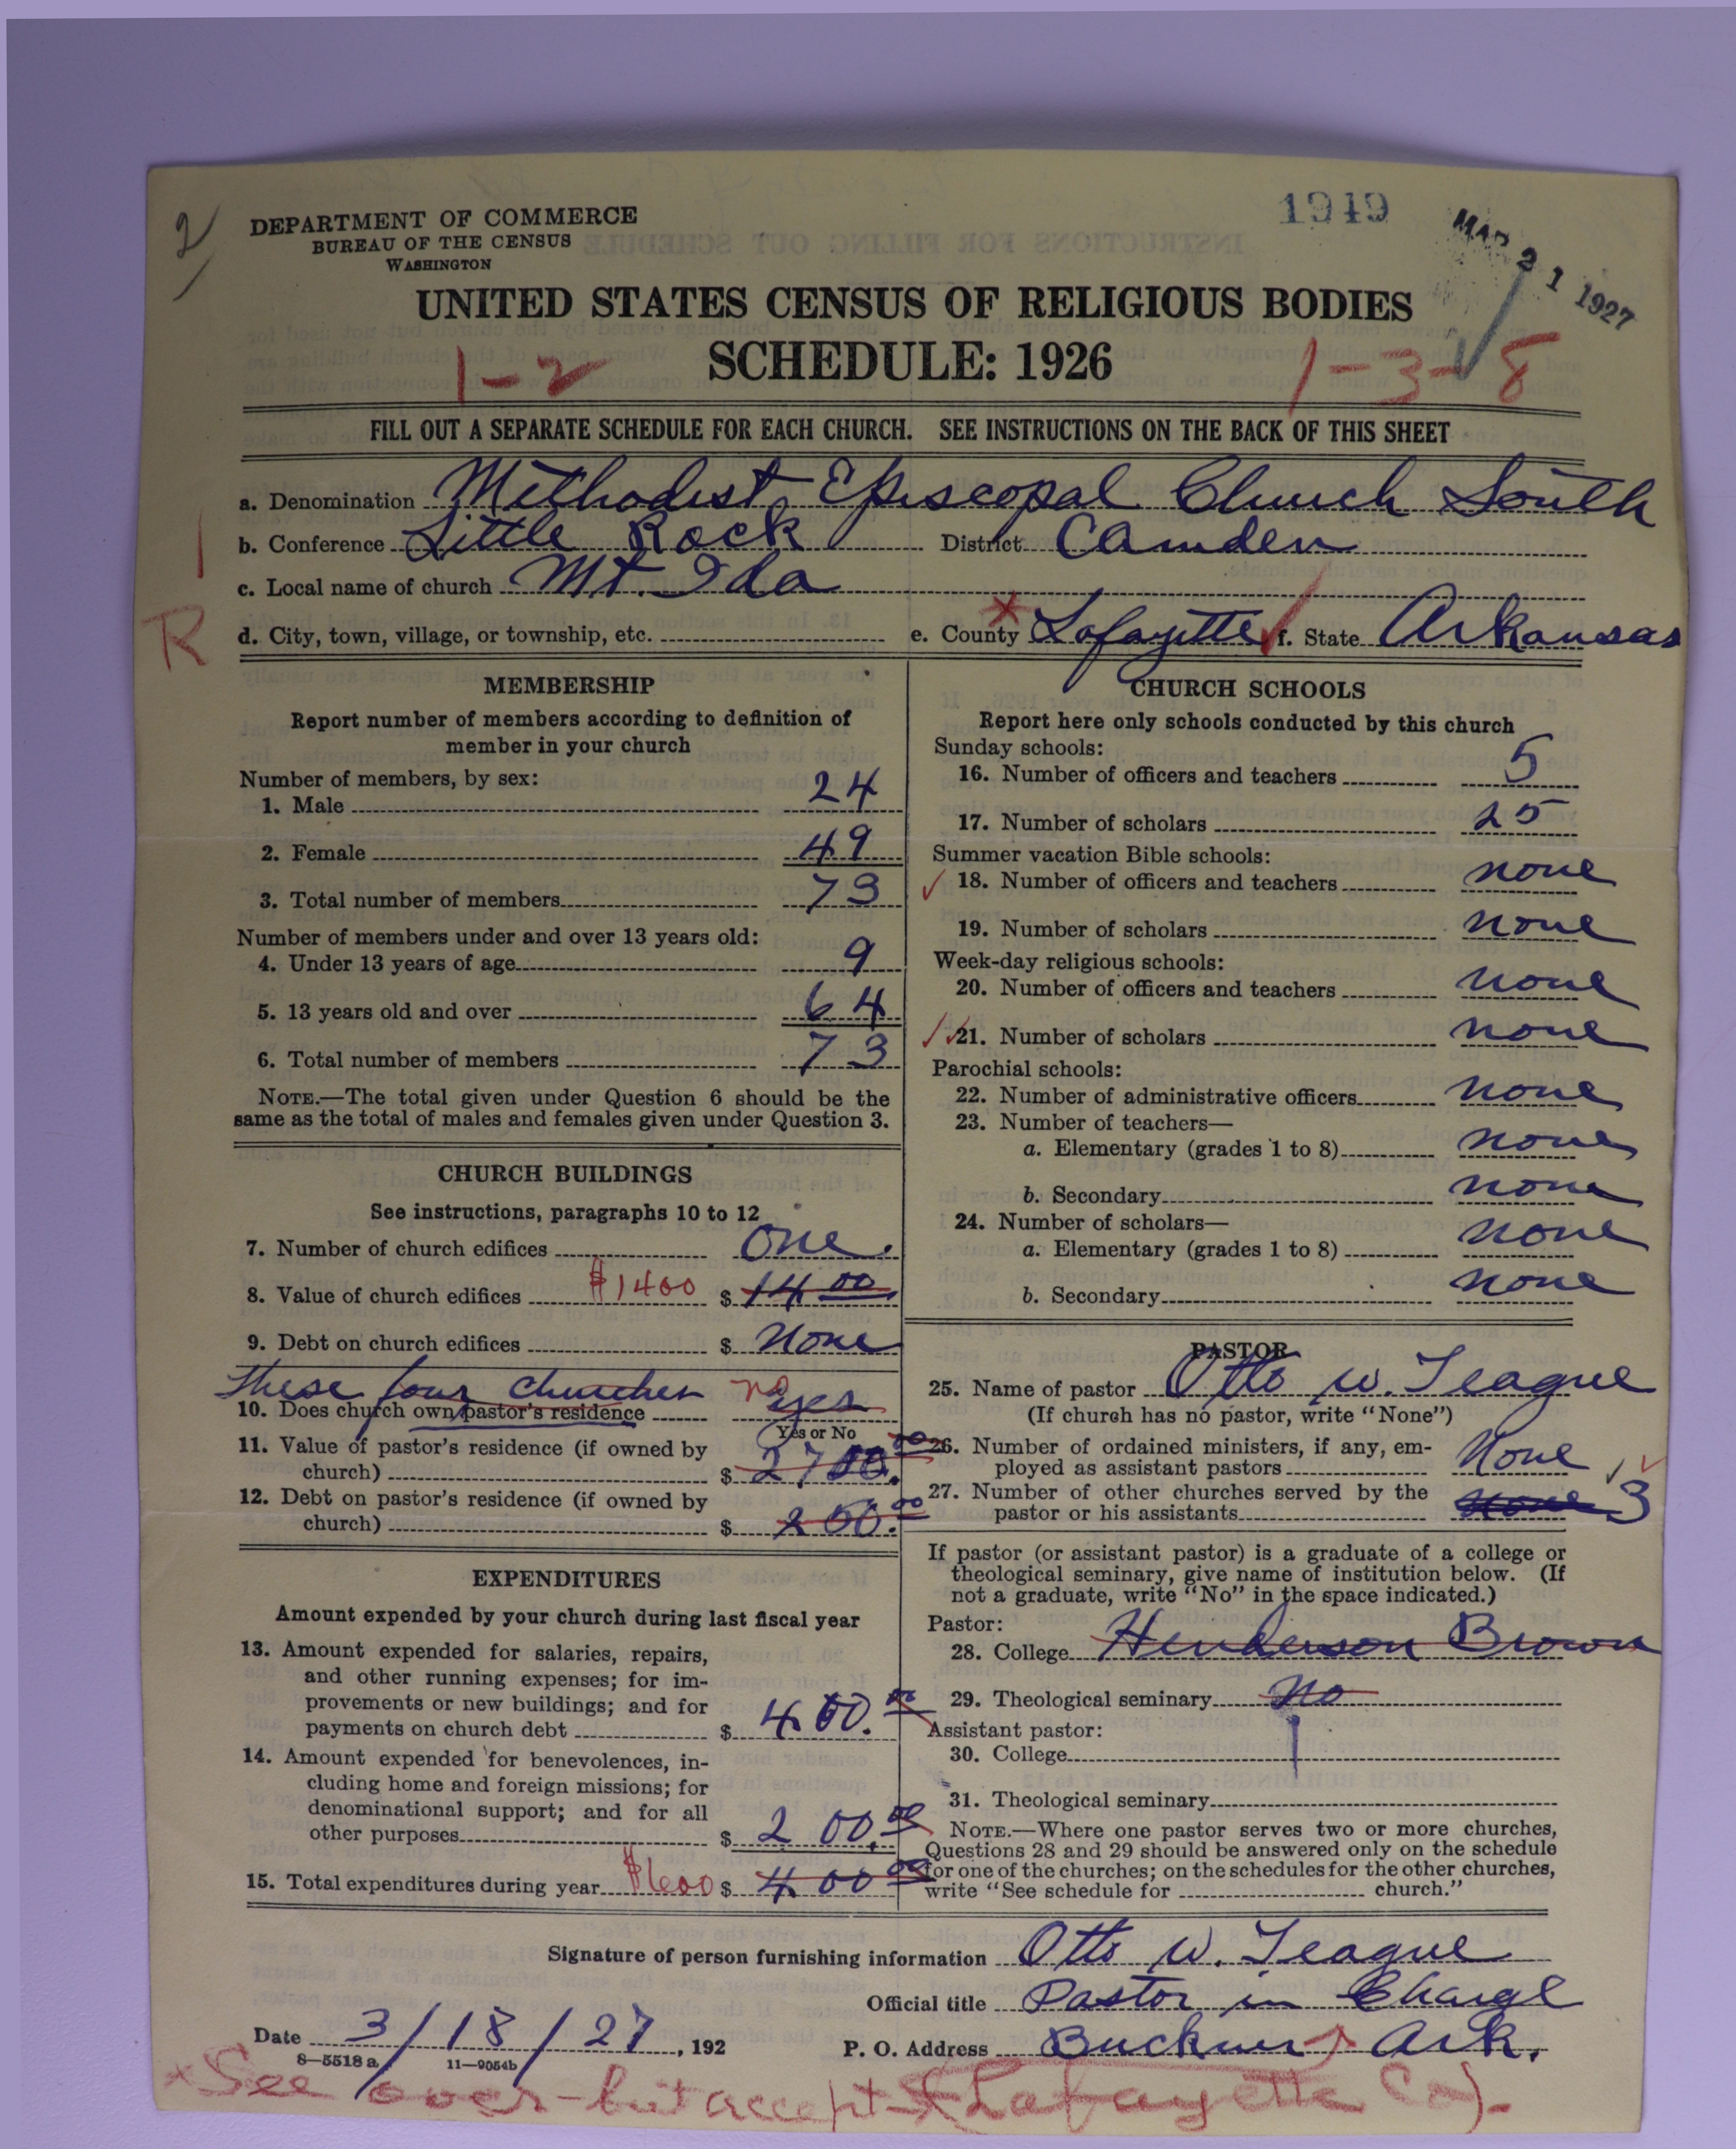 2/
DEPARTMENT OF COMMERCE
BUREAU OF THE CENSUS
WASHINGTON
1949
MAR 21 1927
UNITED STATES CENSUS OF RELIGIOUS BODIES
SCHEDULE: 1926
1-2
1-3-8
FILL OUT A SEPARATE SCHEDULE FOR EACH CHURCH. SEE INSTRUCTIONS ON THE BACK OF THIS SHEET
a. Denomination Methodist Episcopal Church South
b. Conference Little Rock District Camden
c. Local name of church Mt. Ida
R
d. City, town, village, or township, etc. e. County Lafayette f. State Arkansas
MEMBERSHIP
Report number of members according to definition of
member in your church
Number of members, by sex:
1. Male 24
2. Female 49
3. Total number of members 73
Number of members under and over 13 years old:
4. Under 13 years of age 9
5. 13 years old and over 64
6. Total number of members 73
NOTE.—The total given under Question 6 should be the
same as the total of males and females given under Question 3.
CHURCH BUILDINGS
See instructions, paragraphs 10 to 12
7. Number of church edifices One.
8. Value of church edifices $1400 $ 1400
9. Debt on church edifices $ None
These four churches no
10. Does church own pastor's residence yes
Yes or No
11. Value of pastor's residence (if owned by
church) $ 2700.00
12. Debt on pastor's residence (if owned by
church) $ 200.00
EXPENDITURES
Amount expended by your church during last fiscal year
13. Amount expended for salaries, repairs,
and other running expenses; for im-
provements or new buildings; and for
payments on church debt $ 400.00
14. Amount expended for benevolences, in-
cluding home and foreign missions; for
denominational support; and for all
other purposes $ 200.00
15. Total expenditures during year $600 $ 400 00
CHURCH SCHOOLS
Report here only schools conducted by this church
Sunday schools:
16. Number of officers and teachers 5
17. Number of scholars 25
Summer vacation Bible schools:
18. Number of officers and teachers none
19. Number of scholars none
Week-day religious schools:
20. Number of officers and teachers none
21. Number of scholars none
Parochial schools:
22. Number of administrative officers none
23. Number of teachers—
a. Elementary (grades 1 to 8) none
b. Secondary none
24. Number of scholars—
a. Elementary (grades 1 to 8) none
b. Secondary none
PASTOR
25. Name of pastor Otto W. Teague
(If church has no pastor, write "None")
26. Number of ordained ministers, if any, em-
ployed as assistant pastors None
27. Number of other churches served by the
pastor or his assistants none 3
If pastor (or assistant pastor) is a graduate of a college or
theological seminary, give name of institution below. (If
not a graduate, write "No" in the space indicated.)
Pastor:
28. College Henderson Brown
29. Theological seminary No
Assistant pastor:
30. College
31. Theological seminary
NOTE.—Where one pastor serves two or more churches,
Questions 28 and 29 should be answered only on the schedule
for one of the churches; on the schedules for the other churches,
write "See schedule for church."
Signature of person furnishing information Otto W. Teague
Official title Pastor in Charge
Date 3/18/27, 192 P. O. Address Buckner Ark.
8—5518 a 11—9054b
x See over - but accept x (Lafayette Co).